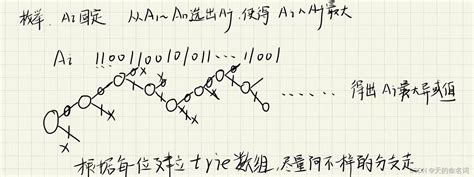 枚举 Ai固定 从A1~An选出Aj,使得 Ai∧Aj最大
Ai 110011001010011……11001
…… 得出Ai最大异或值
根据每位建立trie数组,尽量向不一样的分支走
CSDN @天的命名词